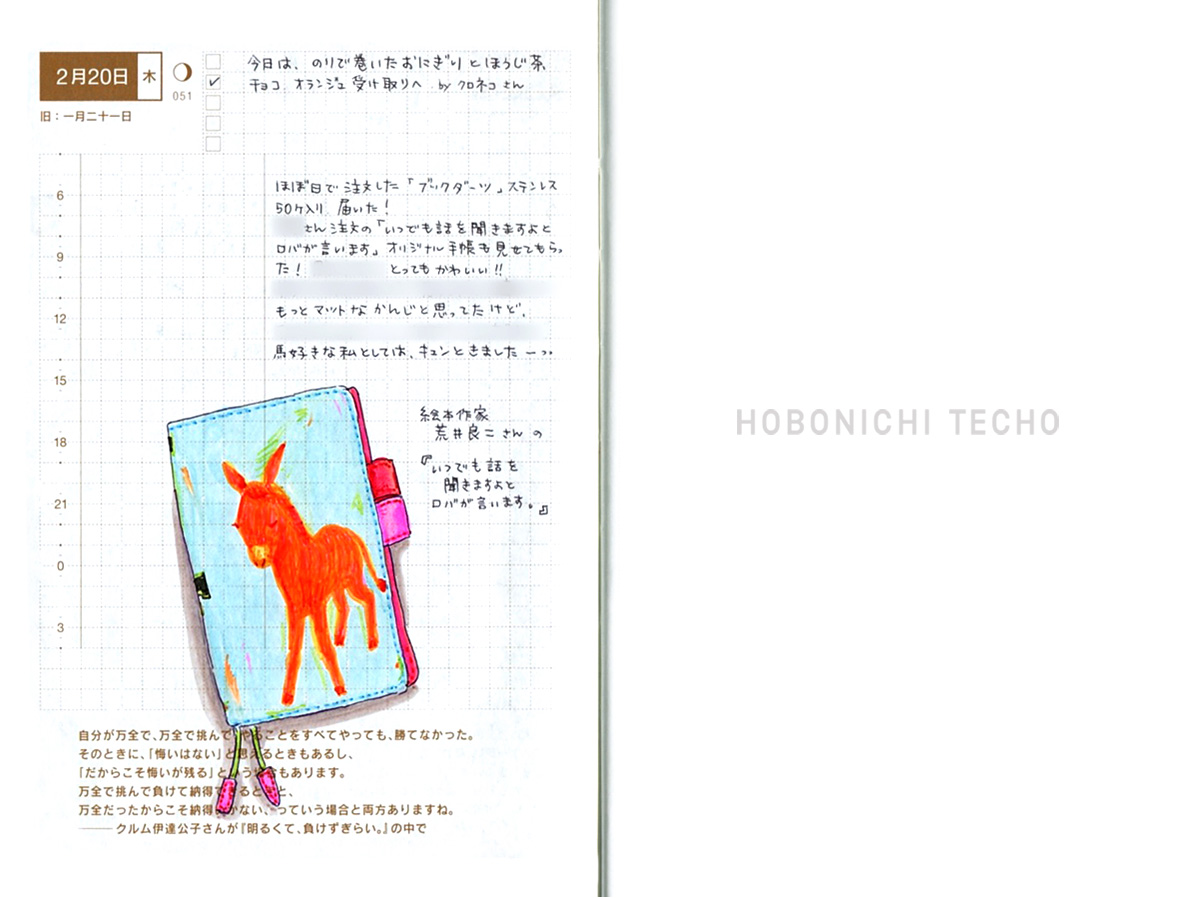 2月20日 木
051
旧：一月二十一日
今日は、のりで巻いたおにぎりとほうじ茶、
チョコ オランジュ受け取りへ by クロネコさん
6
9
12
15
18
21
0
3
ほぼ日で注文した「ブックダーツ」ステンレス
50ケ入り 届いた！
さん注文の「いつでも話を聞きますよと
ロバが言います」オリジナル手帳も見せてもらっ
た！ とってもかわいい!!
もっとマットなかんじと思ってたけど、
馬好きな私としては、キュンときましたーっ。
絵本作家
荒井良二さんの
『いつでも話を
聞きますよと
ロバが言います。』
自分が万全で、万全で挑んで、やることをすべてやっても、勝てなかった。
そのときに、「悔いはない」と思えるときもあるし、
「だからこそ悔いが残る」という場合もあります。
万全で挑んで負けて納得できるときと、
万全だったからこそ納得いかない、っていう場合と両方ありますね。
――クルム伊達公子さんが『明るくて、負けずぎらい。』の中で
HOBONICHI TECHO